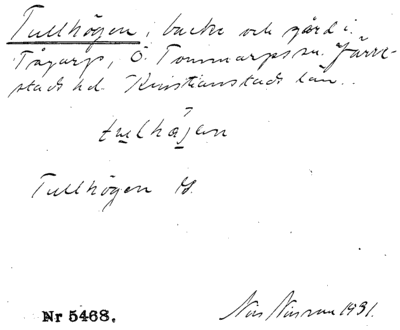 Tullhögen, backe och gård i
Tågarp, Ö. Tommarps sn. Järre-
stads hd. Kristianstads län.
Tullhögen
Nr 5468.
Nils Nilsson 1931.